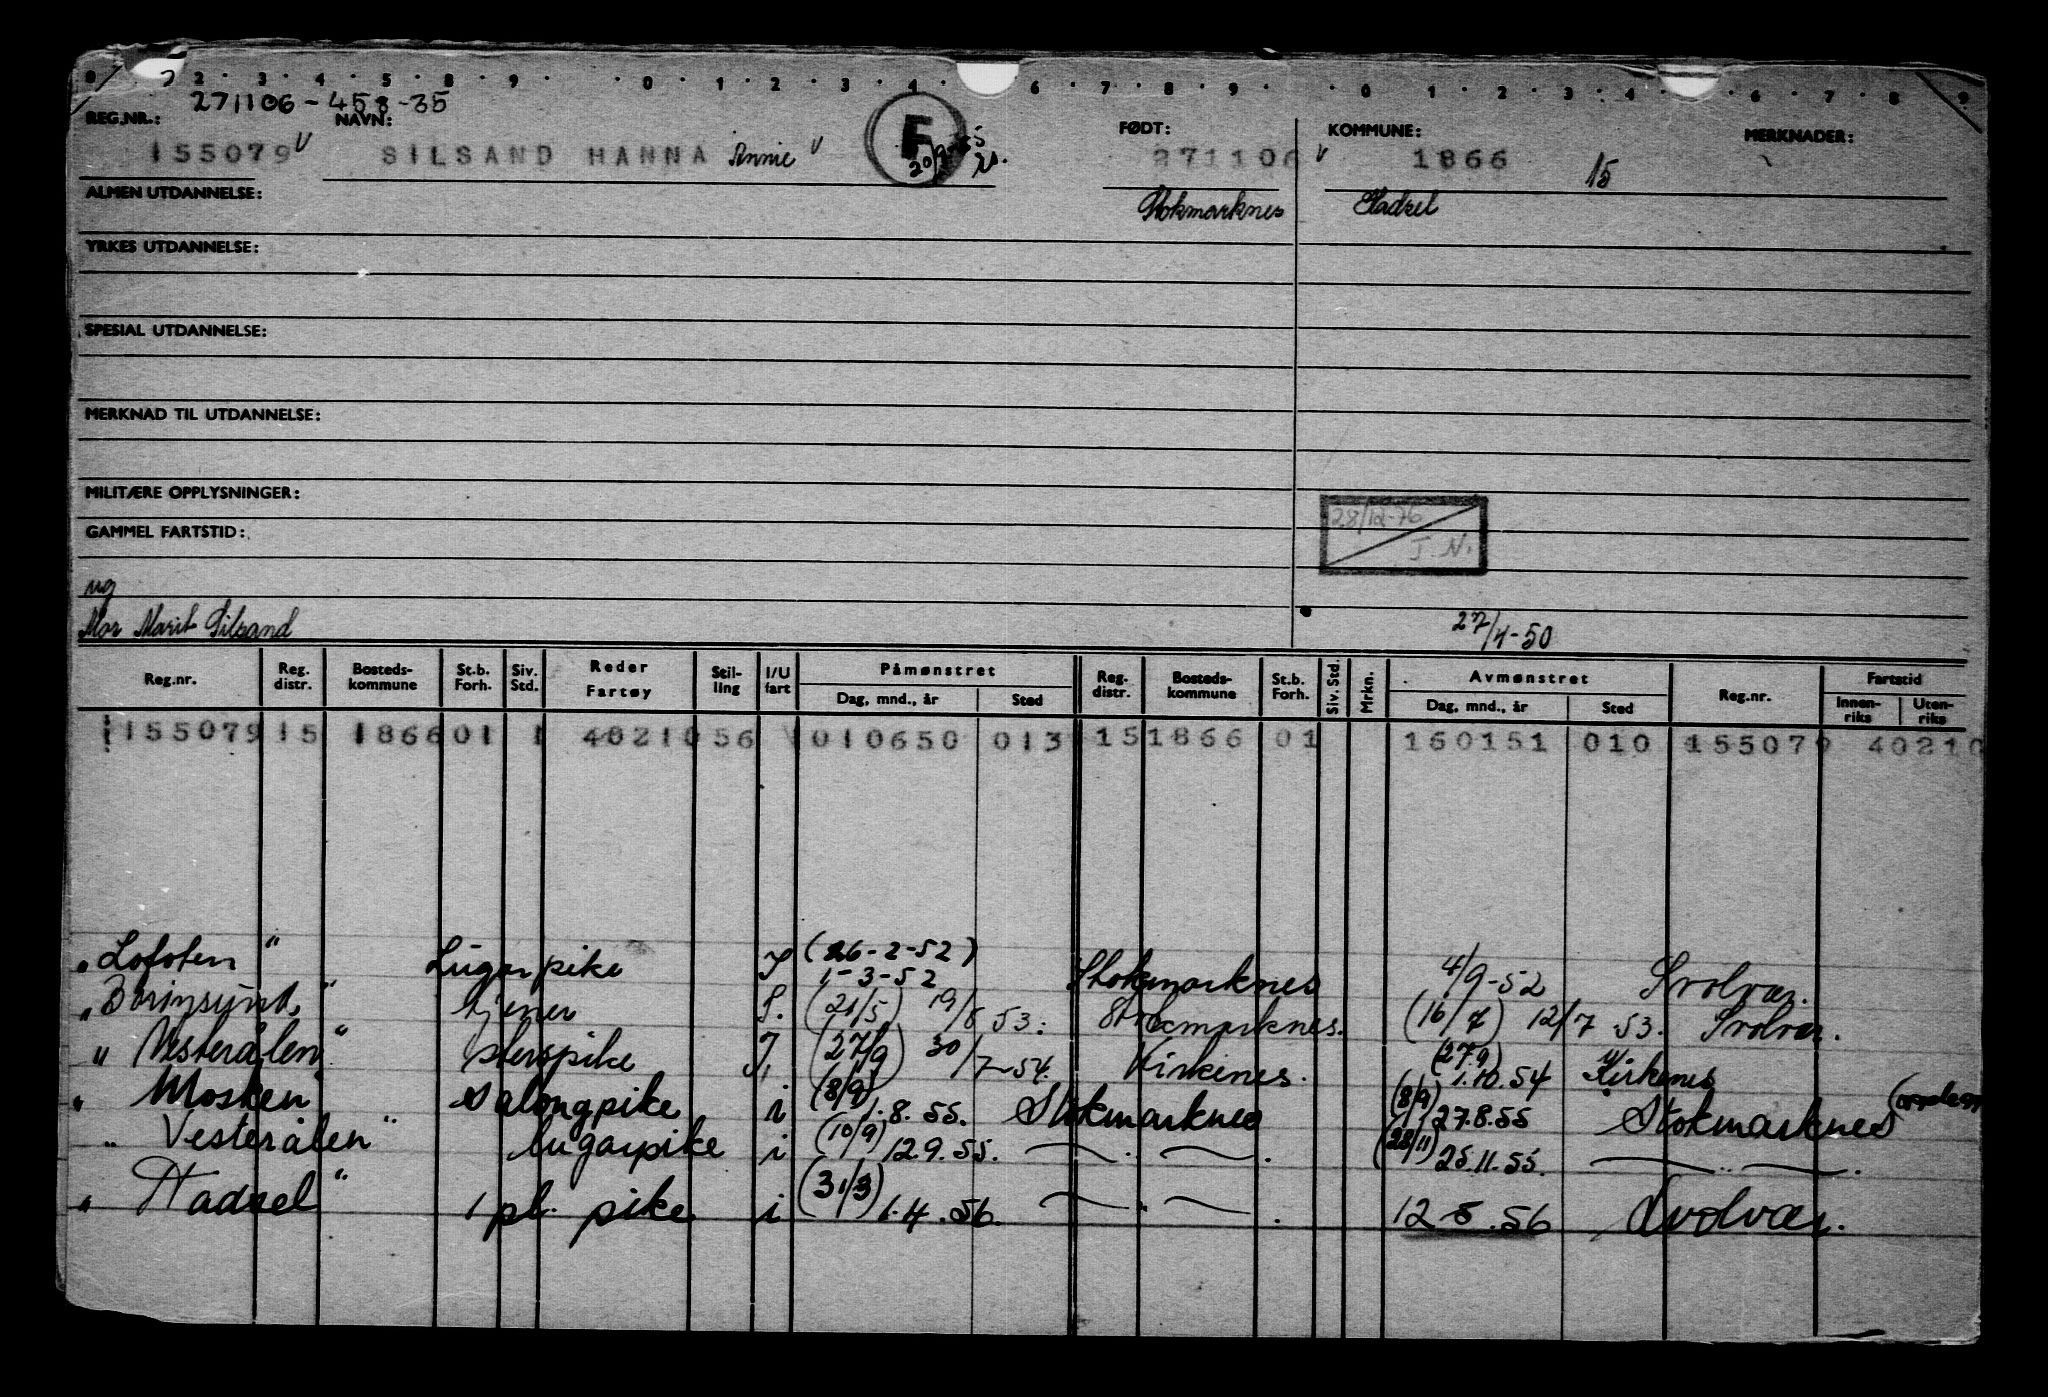 0 2 · 3 · 4 · 5 · 8 · 9 · · 0 · 1 · 2 · 3 · 4 · 6 · 7 · 8 · 9 · · 0 · 1 · 2 · 3 · 4 · 6 · 7 · 8 · 9
271106-458-35
REG.NR.: NAVN: FØDT: KOMMUNE: MERKNADER:
155079 V SILSAND HANNA Annie V F 271106 V 1866 15
ALMEN UTDANNELSE: Stokmarknes Hadsel
YRKES UTDANNELSE:
SPESIAL UTDANNELSE:
MERKNAD TIL UTDANNELSE:
MILITÆRE OPPLYSNINGER:
28/12-76
GAMMEL FARTSTID:
J. N.
ug
Mor Marit Silsand 27/4-50
Reg.nr. Reg. distr. Bosteds-kommune St.b. Forh. Siv. Std. Reder Fartøy Stil-ling I/U fart Påmønstret Dag, mnd., år Sted Reg. distr. Bosteds-kommune St.b. Forh. Siv. Std. Mrkn. Avmønstret Dag, mnd., år Sted Reg.nr. Fartstid Innen-riks Uten-riks
155079 15 1866 01 1 40210 56 010650 013 15 1866 01 160151 010 155079 40210
" Lofoten " Lugarpike I (26-2-52) 1-3-52 Stokmarknes 4/9-52 Svolvær.
" " tjener I. (21/5) 19/5 53. Stokmarknes. (16/7) 12/7 53. Svolvær.
" Vesterålen " pike I. (27/9) 30/7-54. Kirkenes. (27.9) 1.10.54 Kirkenes
" Mosken " Salongpike i (8/9) 1.8.55. Stokmarknes (8/9) 27.8.55 Stokmarknes
" Vesterålen " lugarpike i (10/9) 12.9.55. — " — . (28/11) 25.11.55. — " — .
" Hadsel " 1 pl. pike i (31/3) 1.4.56. — " — . 12-5.56 Svolvær.